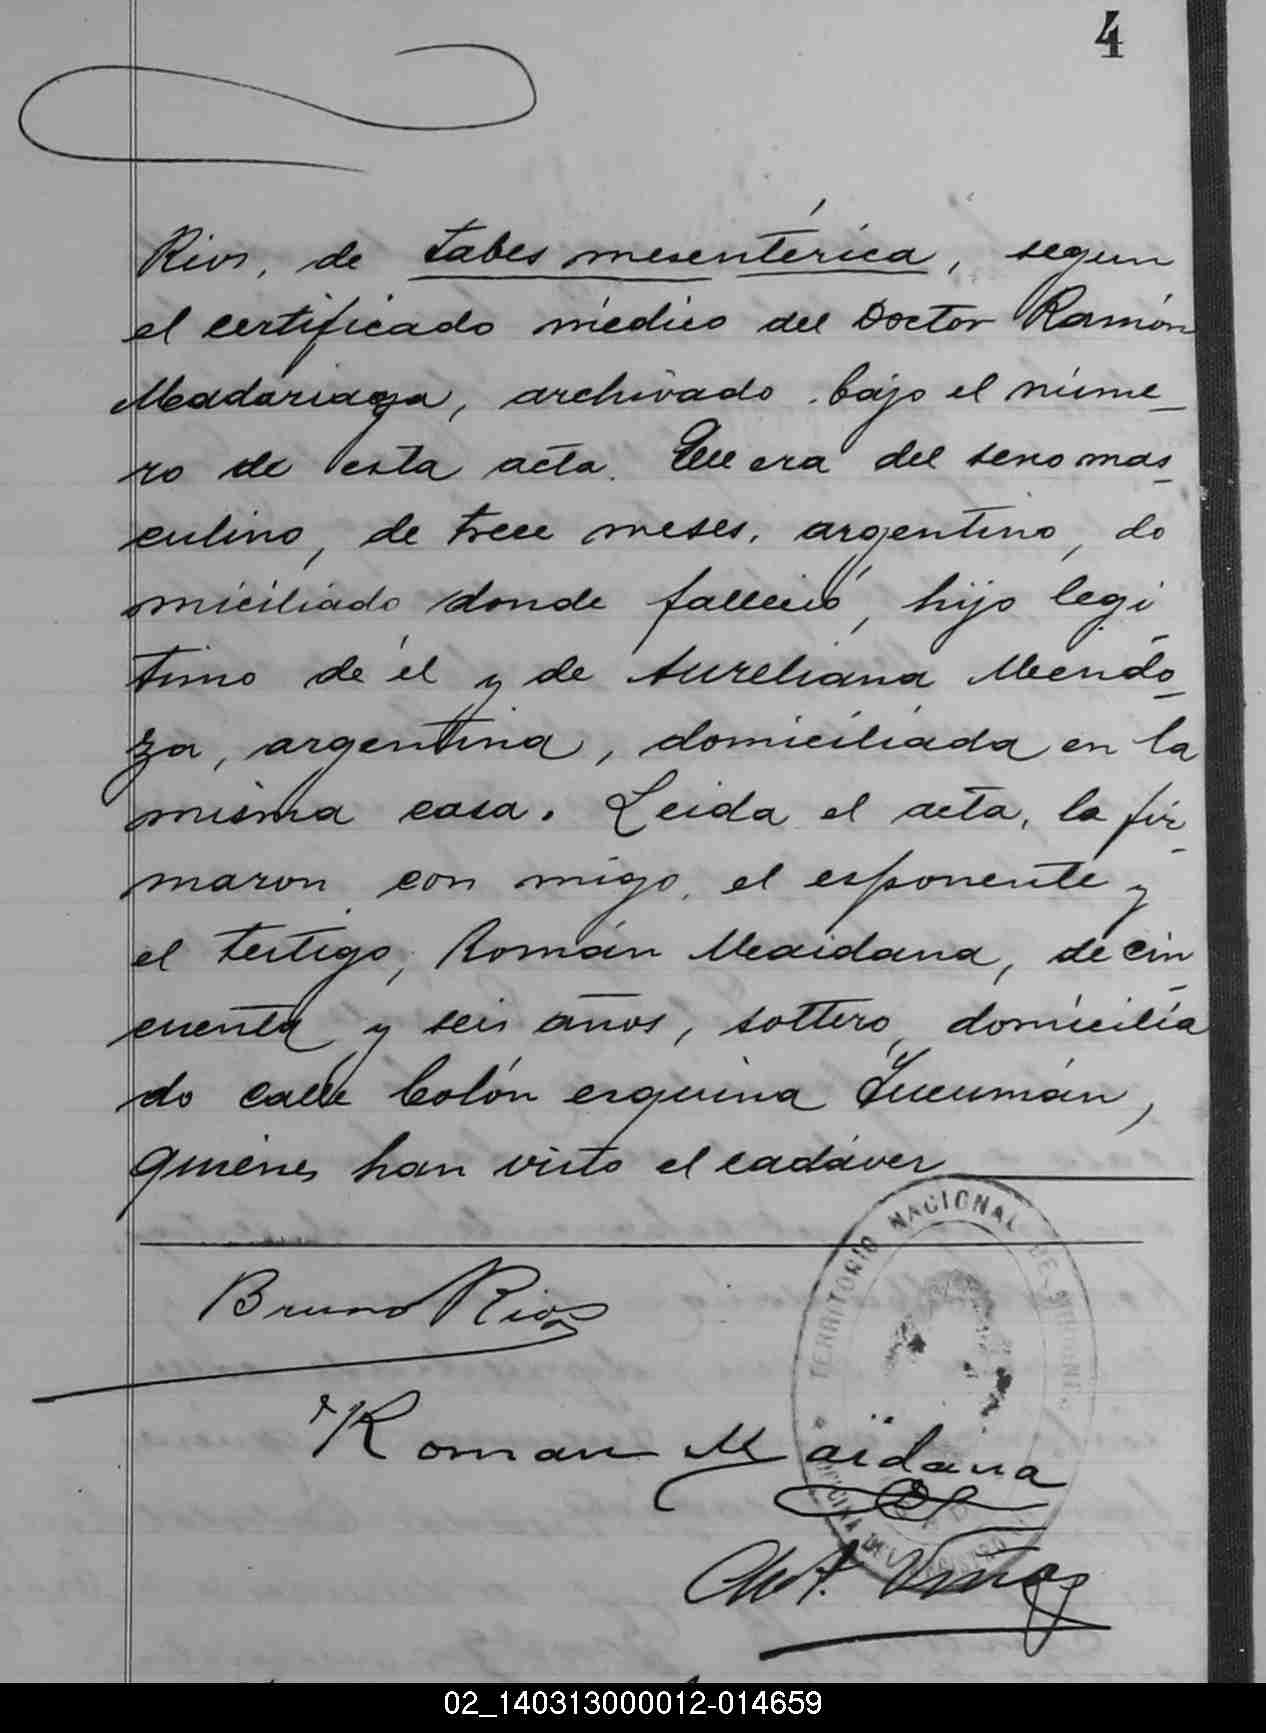 4
Rios, de tabes mesentérica, segun
el certificado médico del Doctor Ramón
Madariaga, archivado bajo el núme-
ro de esta acta. Que era del sexo mas-
culino, de trece meses, argentino, do
miciliado donde falleció, hijo legi-
timo de él y de Aureliana Mendo-
za, argentina, domiciliada en la
misma casa. Leida el acta, la fir-
maron con migo, el esponente y
el testigo, Román Maidana, de cin-
cuenta y seis años, soltero, domicilia
do calle Colón esquina Tucumán,
quienes han visto el cadáver
Bruno Rios
Roman Maidana
TERRITORIO NACIONAL DE MISIONES
OFICINA DEL REGISTRO
02_140313000012-014659